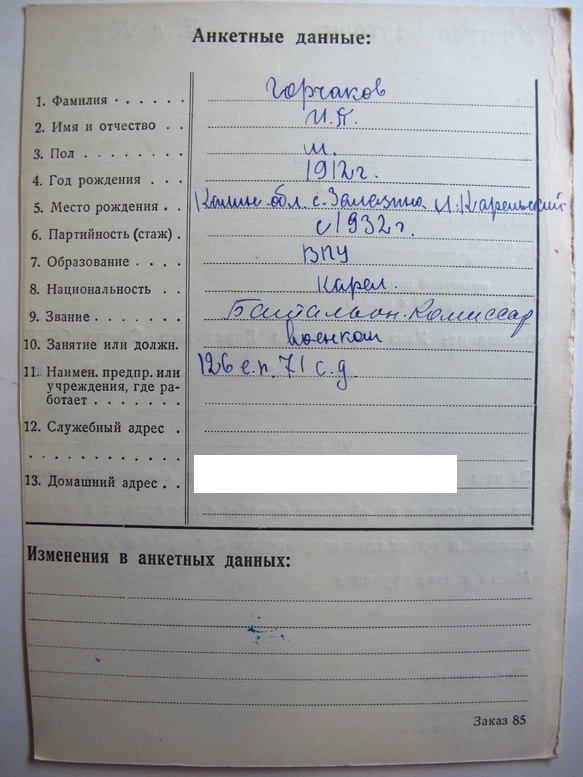 Анкетные данные:
1. Фамилия . . . . . . Горчаков
2. Имя и отчество . . И.П.
3. Пол . . . . . . . . м.
4. Год рождения . . . 1912г.
5. Место рождения . . Калин. обл. с. Залазина Н.Карельский
6. Партийность (стаж) . с 1932г.
7. Образование . . . . ВПУ
8. Национальность . . Карел.
9. Звание . . . . . . . Батальон. Комиссар
10. Занятие или должн. Военком
11. Наимен. предпр. или 126 с.п. 71 с.д
учреждения, где ра-
ботает . . . . . . .
12. Служебный адрес .
13. Домашний адрес . .
Изменения в анкетных данных:
Заказ 85